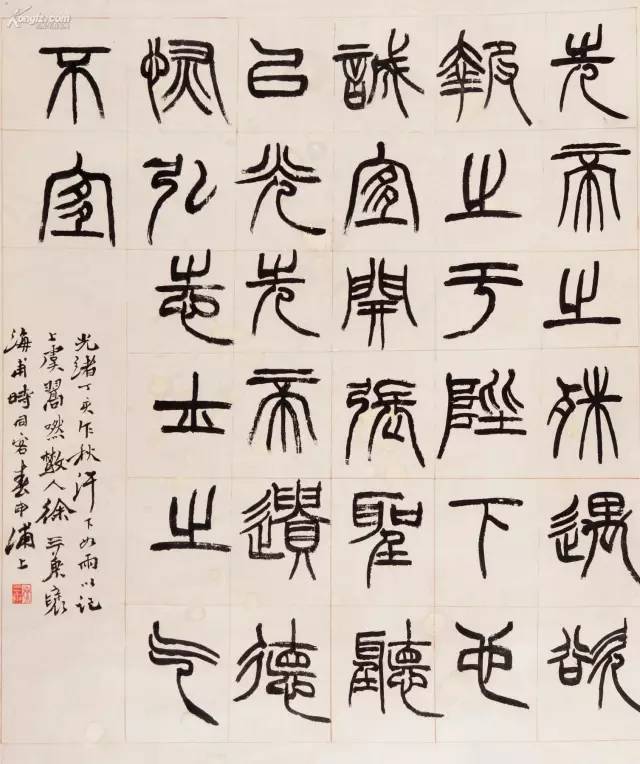 先帝之殊遇欲
報之于陛下也
誠宜開張聖聽
以光先帝遺德
恢弘志士之气
不宜
光緒丁亥乍秋汗下如雨以記
上虞翯嘫散人徐三庚褎
海甫時同客春申浦上
Kongfz.com